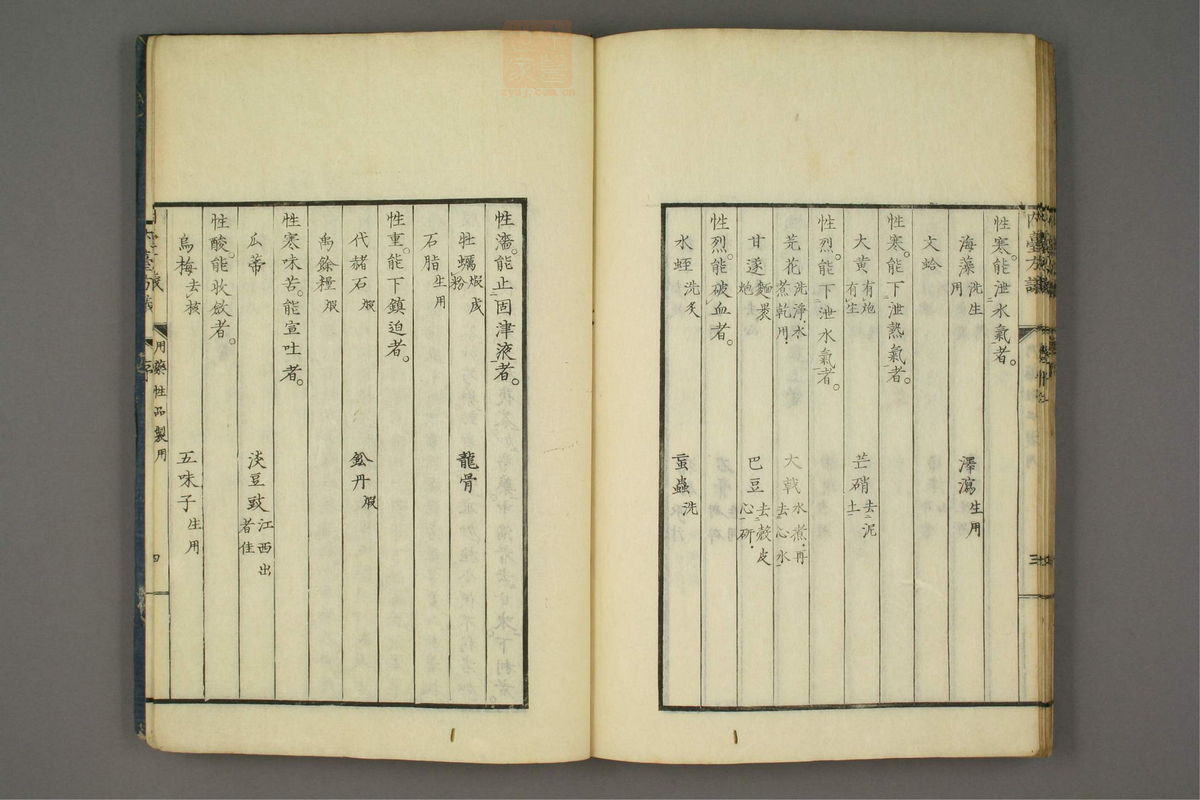 性寒。能泄水氣者。
海藻 洗生用 澤瀉 生用
文蛤
性寒。能下泄熱氣者。
大黃 有炮有生 芒硝 去泥土
性烈。能下泄水氣者。
芫花 洗淨水煮乾用 大戟 水煮再去心水
甘遂 麵裹炮 巴豆 去殼皮心研
性烈。能破血者。
水蛭 洗炙 䖟蟲 洗
性濇。能止固津液者。
牡蠣 煆成粉 龍骨
石脂 生用
性重。能下鎮迫者。
代赭石 煆 鉛丹 煆
禹餘糧 煆
性寒味苦。能宣吐者。
瓜蒂 淡豆豉 江西出者佳
性酸。能收斂者。
烏梅 去核 五味子 生用
用藥性品製用
四